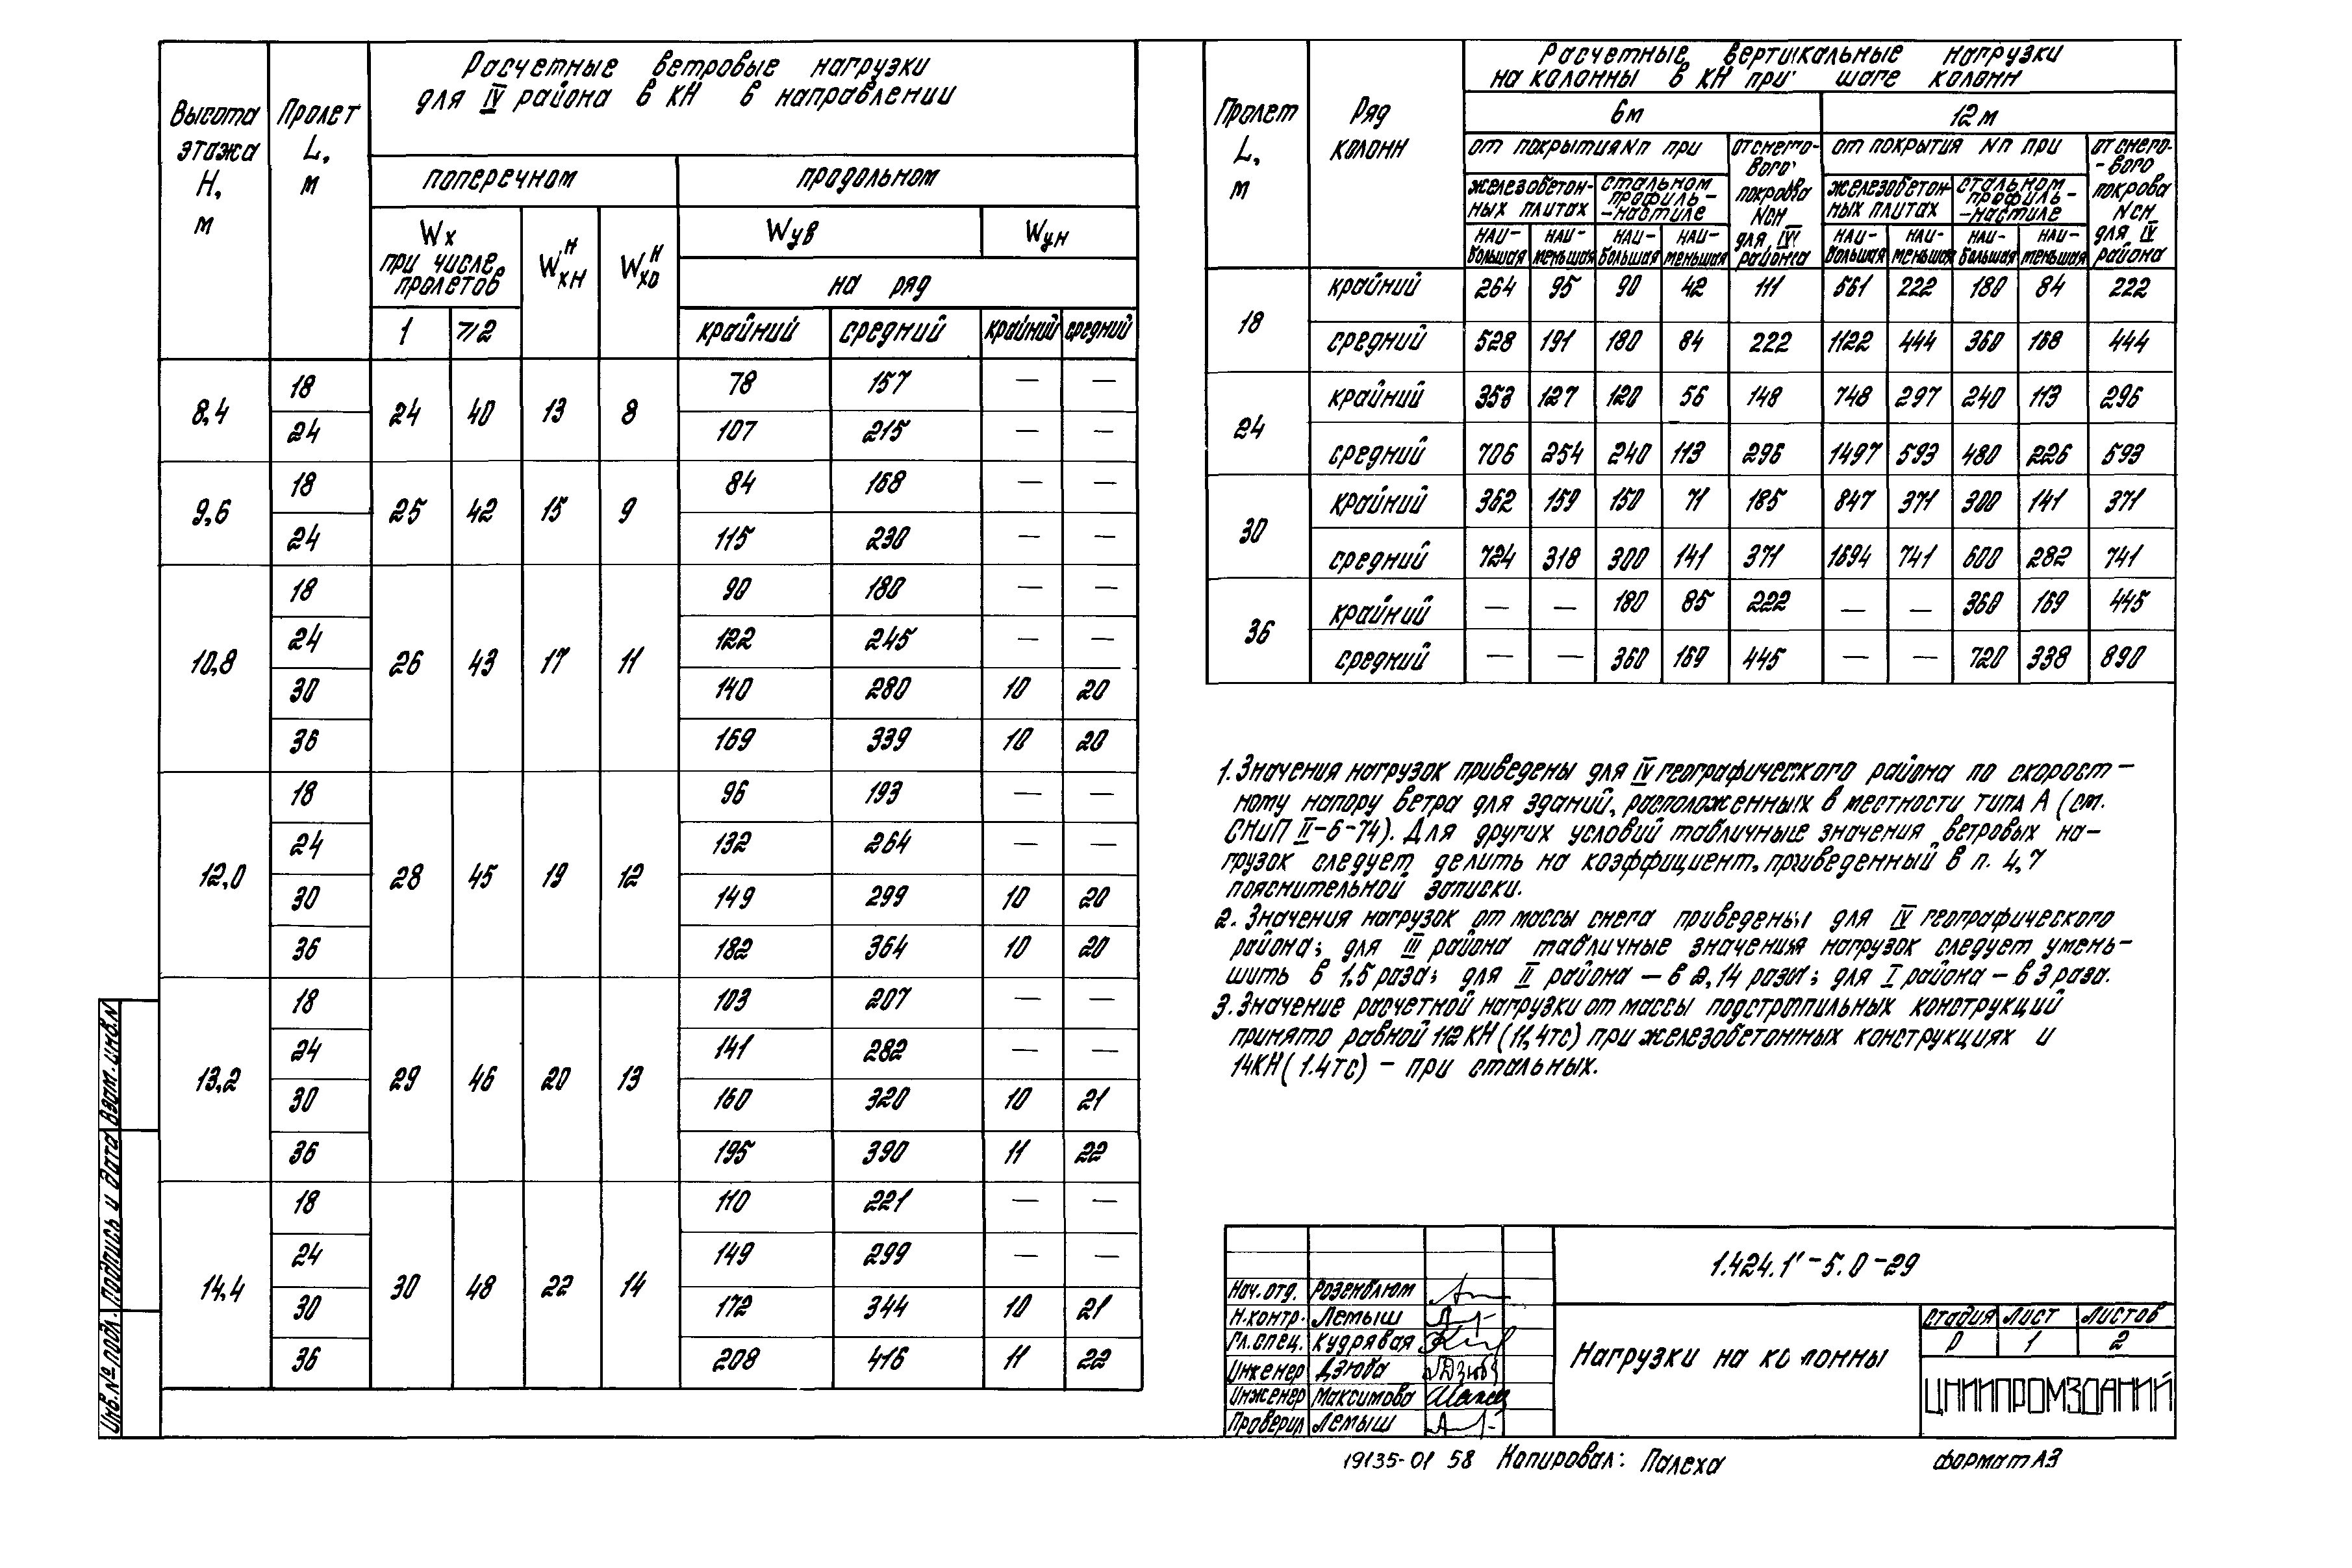 Расчетные ветровые нагрузки
для IV района в кН в направлении
Высота этажа H, м
Пролет L, м
поперечном
продольном
Wx при числе пролетов
Wхн н
Wхо н
Wув
Wун
на ряд
1 ⩾2 крайний средний крайний средний
8,4 18 24 40 13 8 78 157 — —
24 107 215 — —
9,6 18 25 42 15 9 84 168 — —
24 115 230 — —
10,8 18 26 43 17 11 90 180 — —
24 122 245 — —
30 140 280 10 20
36 169 339 10 20
12,0 18 28 45 19 12 96 193 — —
24 132 264 — —
30 149 299 10 20
36 182 364 10 20
13,2 18 29 46 20 13 103 207 — —
24 141 282 — —
30 160 320 10 21
36 195 390 11 22
14,4 18 30 48 22 14 110 221 — —
24 149 299 — —
30 172 344 10 21
36 208 416 11 22
Расчетные вертикальные нагрузки
на колонны в кН при шаге колонн
Пролет L, м
Ряд колонн
6м 12м
от покрытия Nп при
от снегового покрова Nсн для IV района
от покрытия Nп при
от снего-вого покрова Nсн для IV района
железобетонных плитах
стальном профиль-настиле
железобетонных плитах
стальном профиль-настиле
наи-большая наи-меньшая наи-большая наи-меньшая наи-большая наи-меньшая наи-большая наи-меньшая
18 крайний 264 95 90 42 111 561 222 180 84 222
средний 528 191 180 84 222 1122 444 360 168 444
24 крайний 353 127 120 56 148 748 297 240 113 296
средний 706 254 240 113 296 1497 593 480 226 593
30 крайний 362 159 150 71 185 847 371 300 141 371
средний 724 318 300 141 371 1694 741 600 282 741
36 крайний — — 180 85 222 — — 360 169 445
средний — — 360 169 445 — — 720 338 890
1. Значения нагрузок приведены для IV географического района по скорост-
ному напору ветра для зданий, расположенных в местности типа А (см.
СНиП II-6-74). Для других условий табличные значения ветровых на-
грузок следует делить на коэффициент, приведенный в п. 4,7
пояснительной записки.
2. Значения нагрузок от массы снега приведены для IV географического
района; для III района табличные значения нагрузок следует умень-
шить в 1,5 раза; для II района — в 2,14 раза; для I района — в 3 раза.
3. Значение расчетной нагрузки от массы подстропильных конструкций
принято равной 112 кН (11,4тс) при железобетонных конструкциях и
14кН (1.4тс) — при стальных.
1.424.1'-5.0-29
Нач. отд. Розенблюм
Н.контр. Лемыш
Гл.спец. Кудрявая
Инженер Дзюба
Инженер Максимова
Проверил Лемыш
Нагрузки на колонны
Стадия Лист Листов
Р 1 2
ЦНИИПРОМЗДАНИЙ
Взам. инв.N
Подпись и дата
Инв.№ подл.
19135-01 58 Копировал: Палеха формат А3